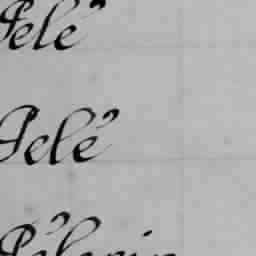 Pelé
Pelé
Pélerin